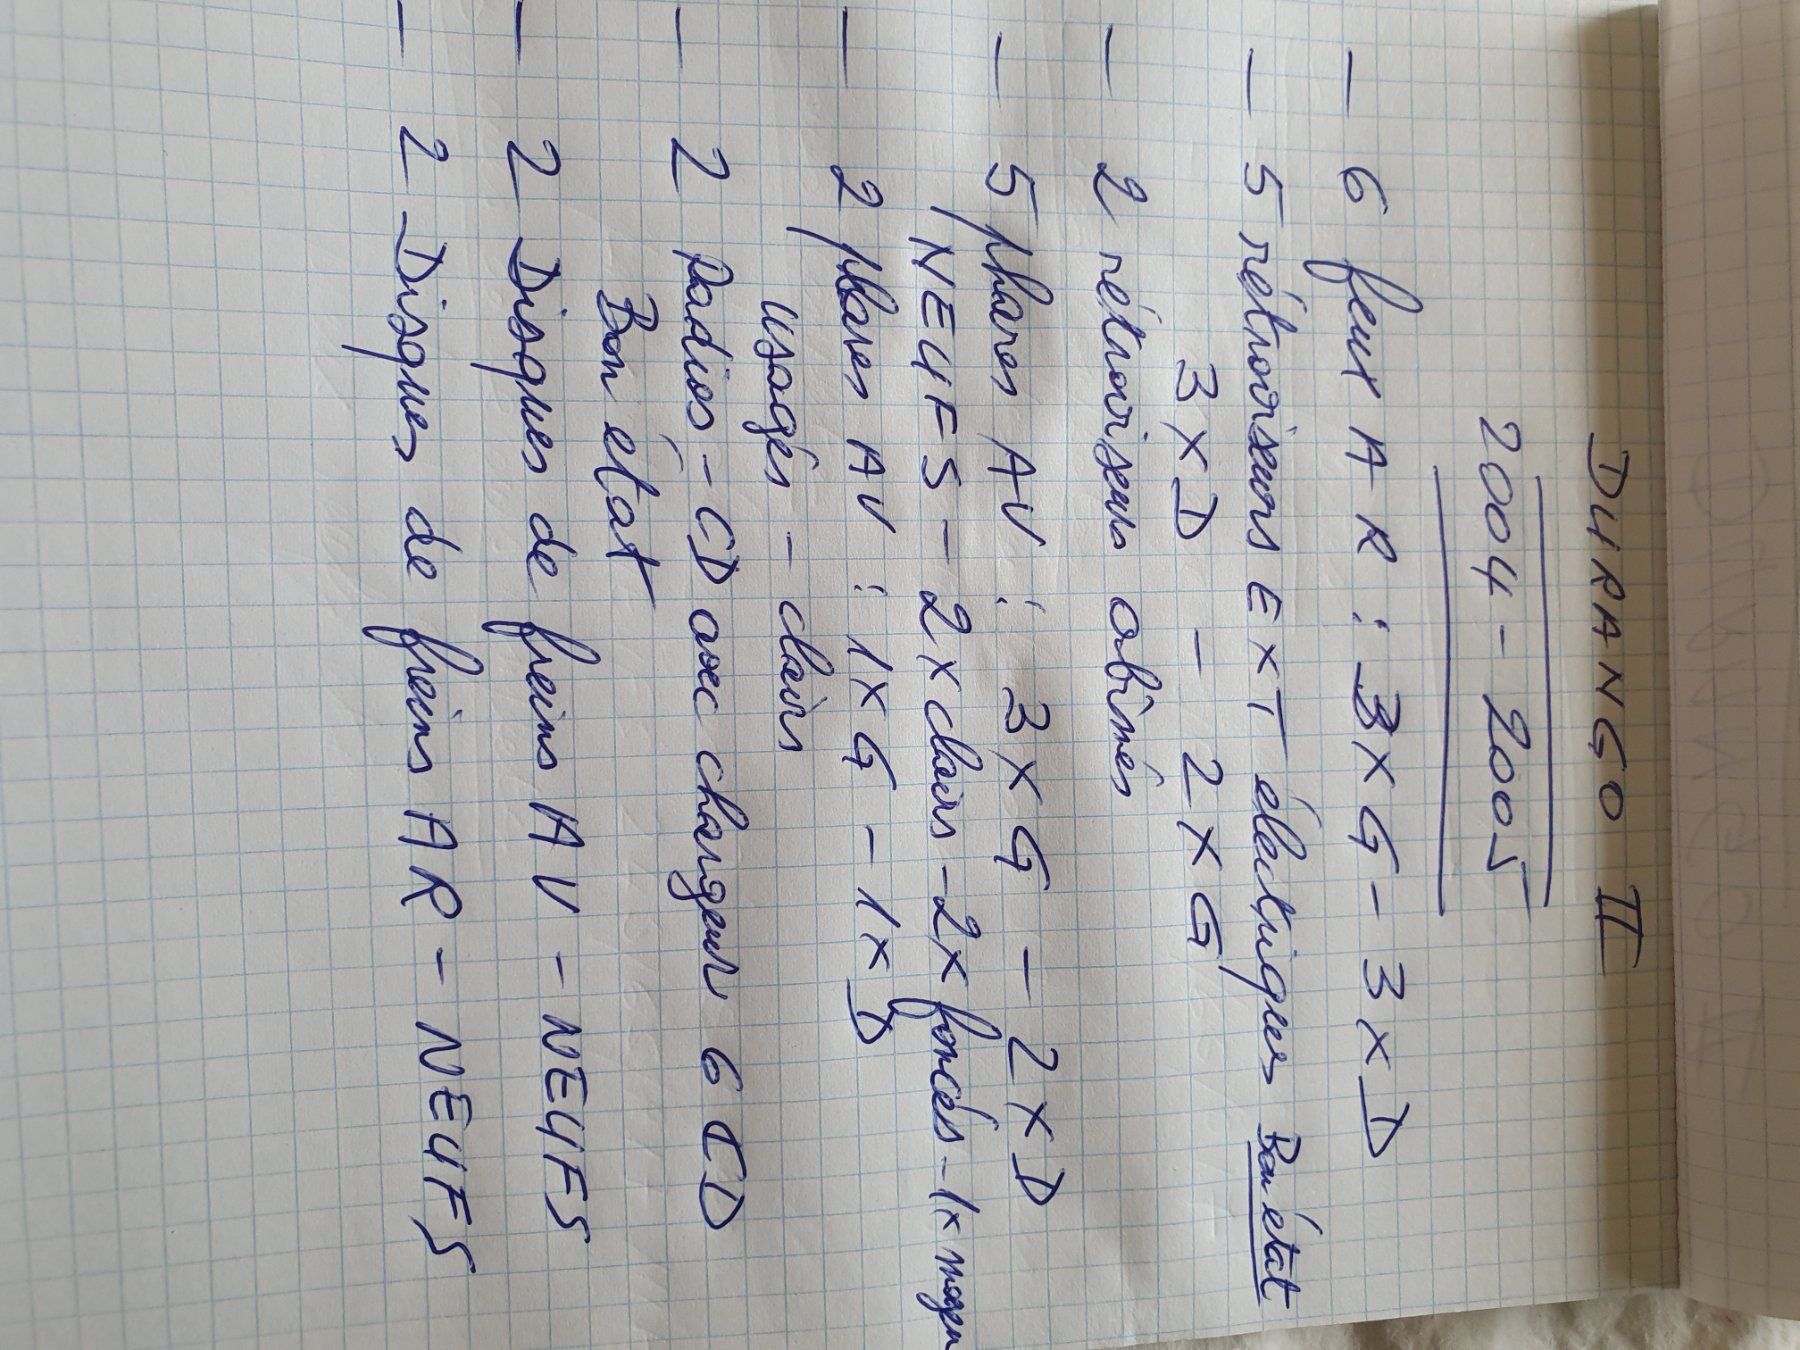 DURANGO II
2004 - 2005
- 6 feux AR : 3xG - 3xD
- 5 rétroviseurs EXT électriques Bon état
3xD - 2xG
- 2 rétroviseurs abîmés
- 5 phares AV : 3xG - 2xD
NEUFS - 2x clairs - 2x foncés - 1x moyen
- 2 phares AV : 1xG - 1xD
usagés - clairs
- 2 Radios - CD avec chargeur 6 CD
Bon état
- 2 Disques de freins AV - NEUFS
- 2 Disques de freins AR - NEUFS